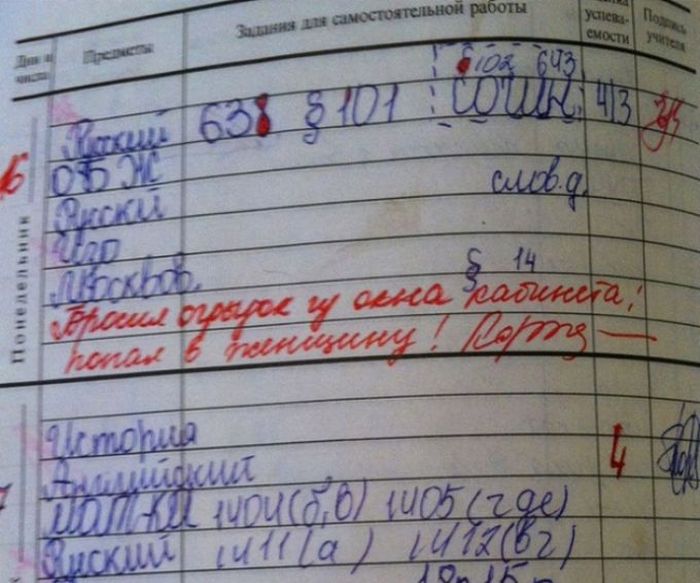 Дни и числа Предметы Задания для самостоятельной работы успева-емости Подпись учителя
§102 643
Русский 638 §101 СОЧИН. 4/3
16
Понедельник
ОБЖ
Русски слов.д.
Изо
Москвов. § 14
Бросил огрызок из окна кабинета,
попал в женщину!
История
Английский 4
7 МАТ-КА 1404(б,в) 1405(где)
Русский 1411(а) 1412(вг)